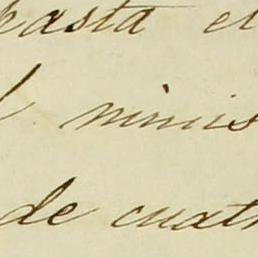 hasta el
minis
de cuatr